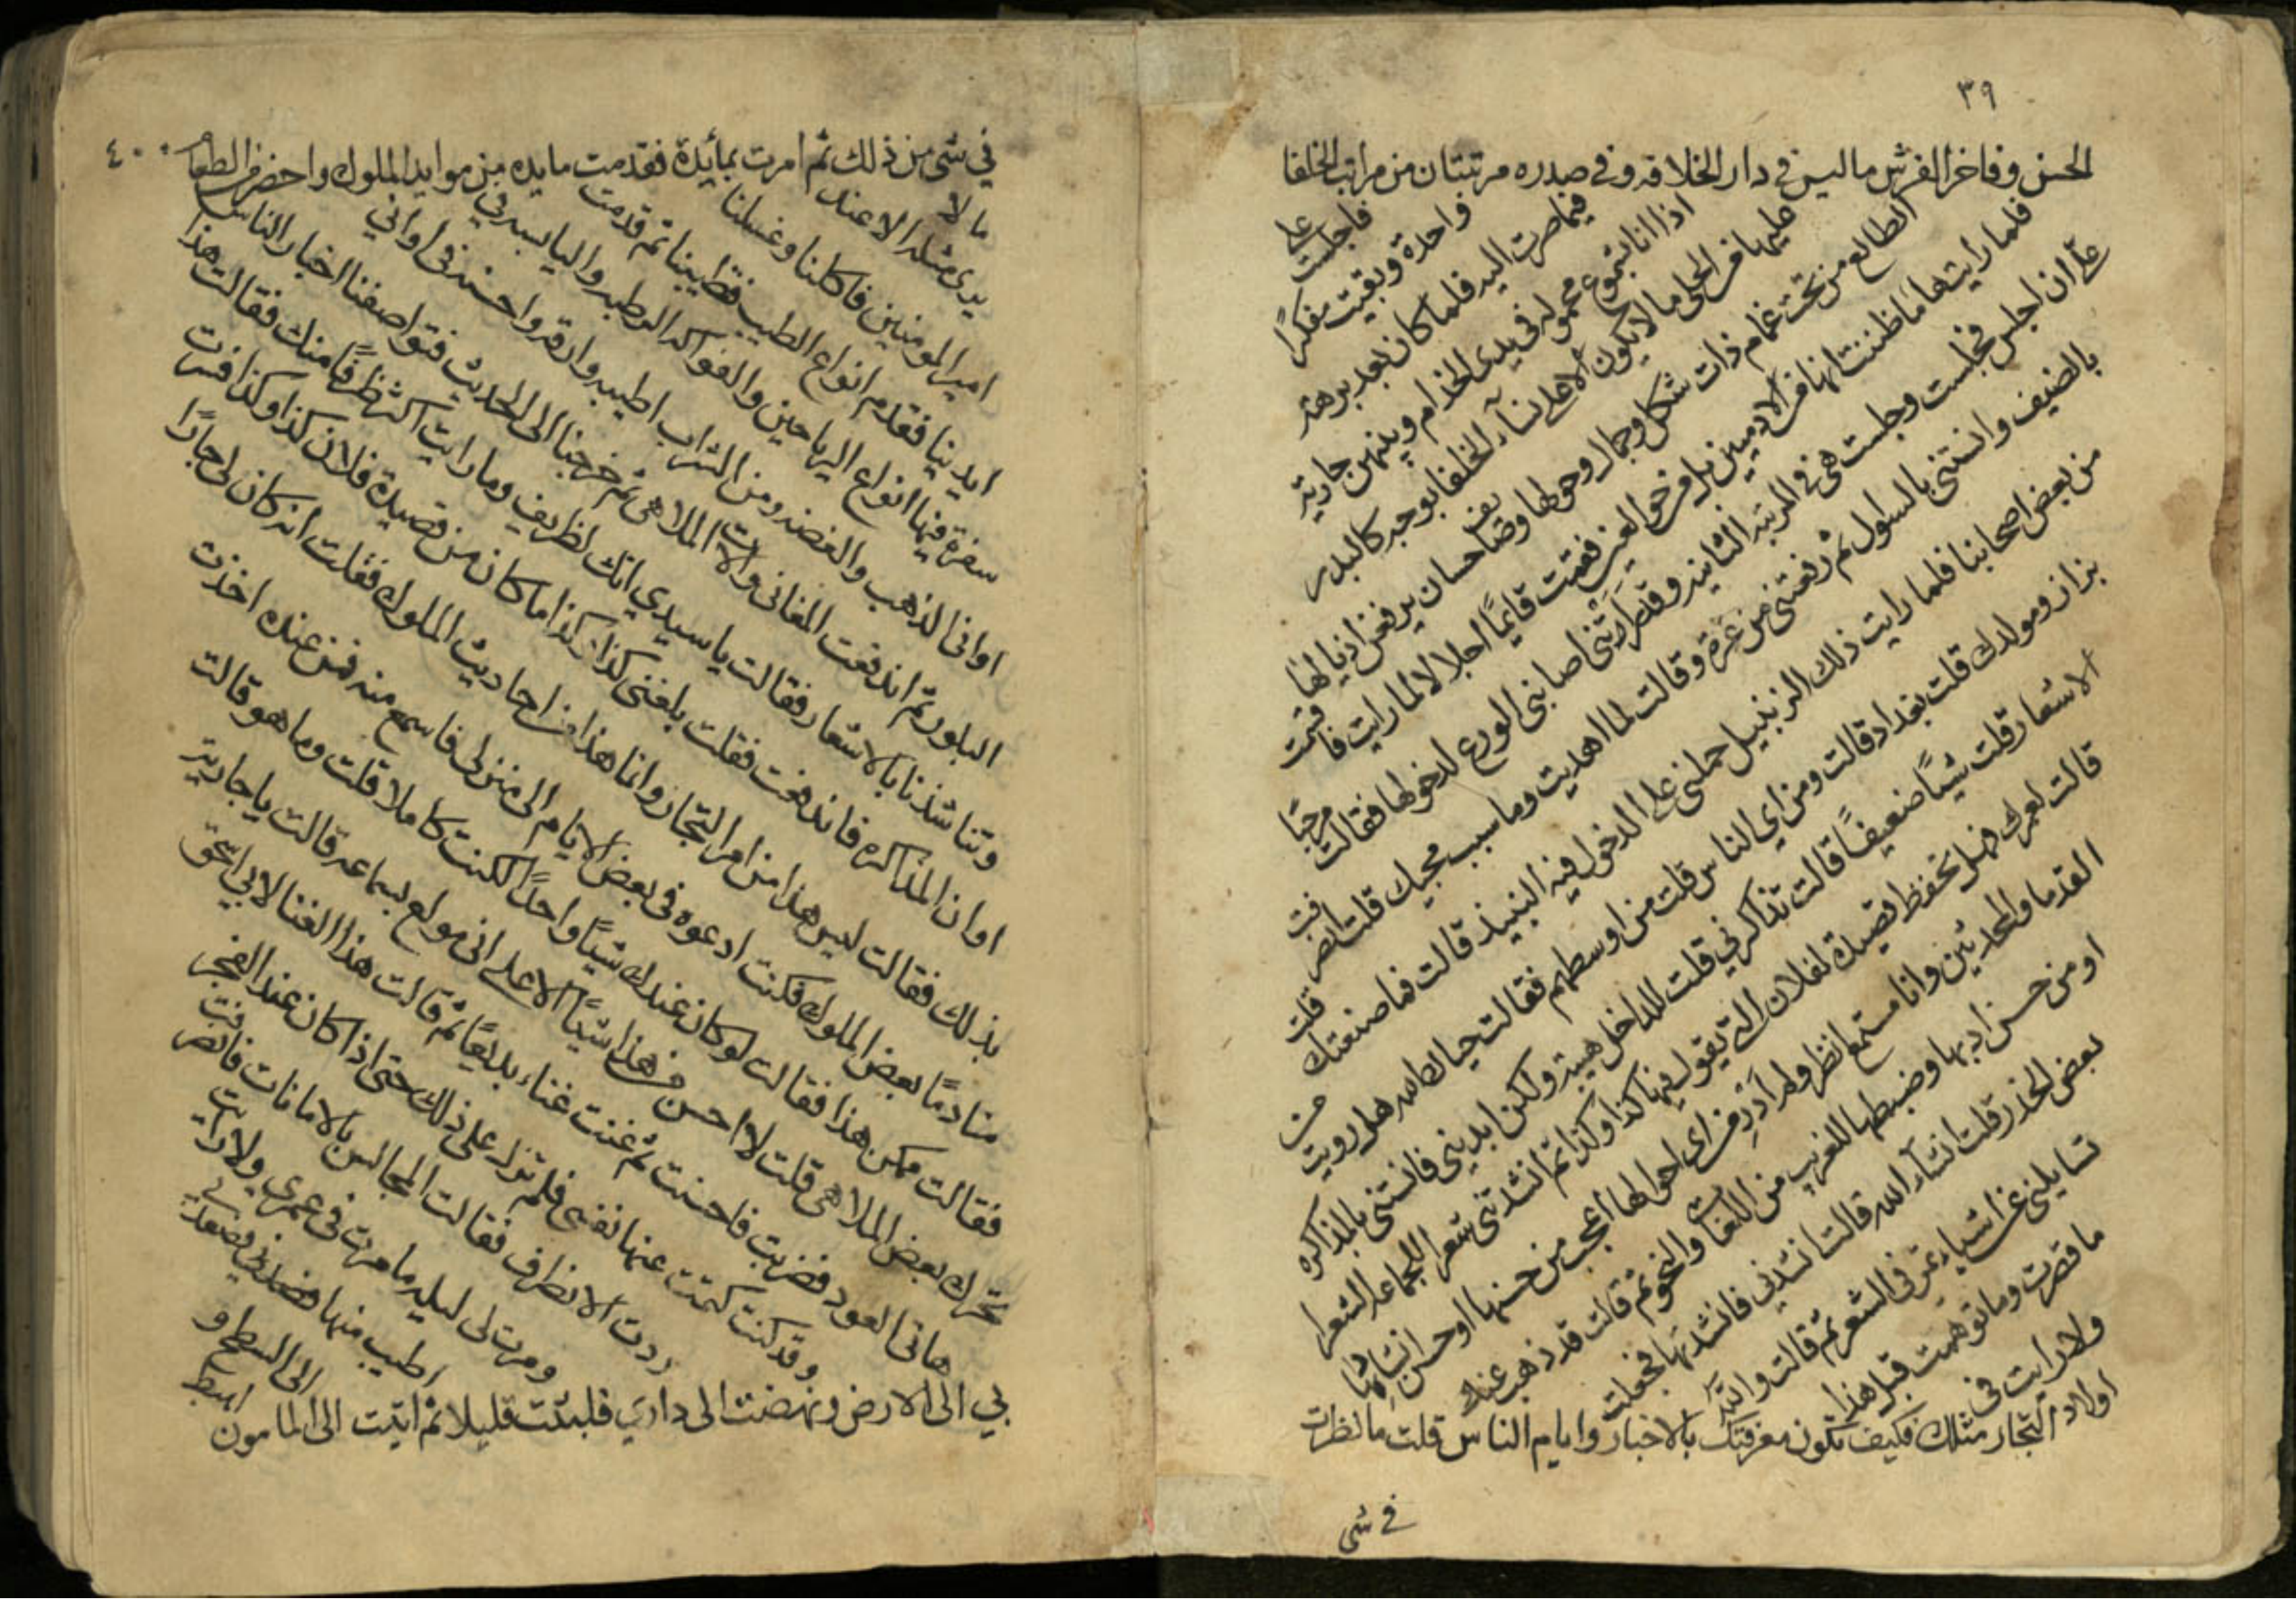 ٣٩
الحسن وفاخر الفرش ما ليس في دار الخلافه وفي صدره مرتبتان من مراتب الخلفا
فاجلست على
واحدة وبقيت مفكرًا
فيما صرت اليه فلما كان بعد برهة
اذا انا بشموع محموله في يدي الخدام وبينهن جارية
عليها من الحلي ما لا يكون الا على نسآء الخلفا بوجه كالبدر
الطالع من تحت غمام ذات شكل وجمال وحولها وصايف حسان يرفعن اذيالها
فلما رأيتها ما ظننت انها من الادميين بل من حور العين فقمت قايمًا اجلالا لما رايت فاقسمت
علي ان اجلس فجلست وجلست هي في المرتبة الثانيه وقد رأتني اصابني الورع لدخولها فقالت مرحبًا
بالضيف وانستني بالسول ثم رفعتني من غمرة وقالت لما اهديت وما سبب مجيك قلت انصرفت
من بعض اصحابنا فلما رايت ذلك الزنبيل حملني على الدخول فيه النبيذ قالت فما صنعتك قلت
بزاز ومولدك قلت بغداد قالت ومن اي الناس قلت من اوسطهم فقالت حياك الله هل رويت من
الاشعار قلت شيًا ضعيفًا قالت تذاكرني قلت للداخل هيبة ولكن ابديني فانستني بالمذاكره
قالت لعمرك فهل تحفظ قصيدة لفلان التي يقول فيها كذا وكذا ثم انشدتني شعر الجماعه الشعرا
القدما والمحدثين وانا مستمع انظر ولم أدر من اي احوالها اعجب من حسنها او حسن انشادها
او من حسن ادبها وضبطها للغريب من اللغات والنحو ثم قالت قد ذهب عنك
بعض الحذر قلت انشآء الله قالت انشدني فانشدتها فجعلت
تسايلني عن اشياء تمر في الشعر ثم قالت والله
ما قصرت وما توهمت قبل هذا
ولا رايت في
اولاد التجار مثلك فكيف تكون معرفتك بالاخبار وايام الناس قلت ما نظرت
في شي
٤٠
في شي من ذلك ثم امرت بمأيدة فقدمت مايده من موايد الملوك واحضر من الطعام
ما لا
يرى مثله الا عند
امير المومنين فاكلنا وغسلنا
ايدينا فقدم انواع الطيب فطيبنا ثم قدمت
سفرة فيها انواع الرياحين والفواكه الرطبه واليابسه في
اواني الذهب والفضه ومن الشراب اطيبه وارقه واحسنه في اواني
البلور ثم اندفعت المغاني والات الملاهي ثم خرجنا الى الحديث فتواصفنا اخبار الناس
وتناشدنا بالاشعار فقالت يا سيدي انك لظريف وما رايت اكثر ظرفًا منك فقالت هذا
اوان المذاكره فاندفعت فقلت بلغني كذا وكذا ما كان من قصيدة فلان كذا وكذا فسرت
بذلك فقالت ليس هذا من امر التجار وانما هذا من احاديث الملوك فقلت انه كان لي جارًا
منادمًا بعض الملوك فكنت ادعوه في بعض الايام الى منزلي فاسمع منه فمن عنده اخذت
فقالت ممكن هذا فقالت لو كان عندك شيًا واحدًا لكنت كاملا قلت وما هو قالت
تحرك بعض الملاهي قلت لا احسن من هذا شيًا الا على اني مولع بسماعه قالت يا جارية
هاتي العود فضربت فاحسنت ثم غنت غناء بديعًا ثم قالت هذا الغنا لابي اسحق
وقد كنت كتمت عنها نفسي فلم تزل على ذلك حتى اذا كان عند الفجر
اردت الانظراف فقالت المجالس بالامانات فانصرفت
ومرت لي ليله ما مرت في عمري ولا رايت
اطيب منها
الى السطح و
اهبط
بي الى الارض ونهضت الى داري فلبثت قليلا ثم اتيت الى المامون